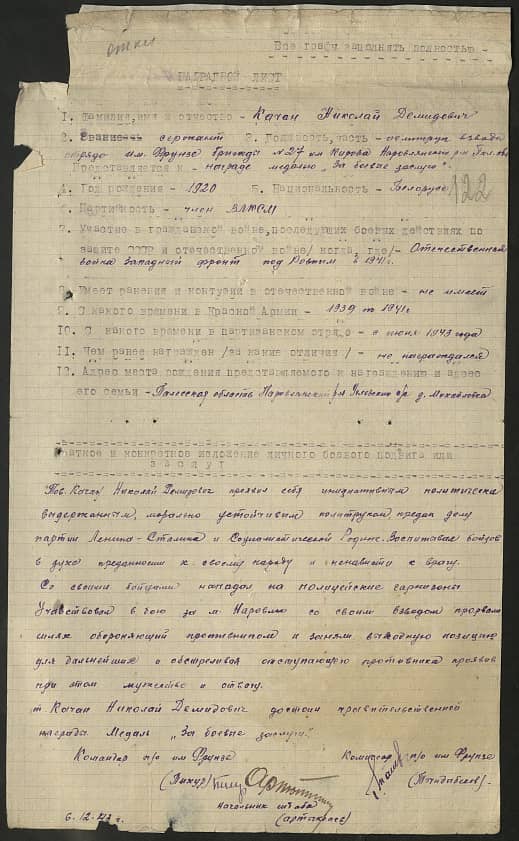 Все графы заполнять полностью -
НАГРАДНОЙ ЛИСТ
1. Фамилия, имя и отчество - Качан Николай Демидович
2. Звание - сержант 3. Должность, часть - политрук взвода
отряда им. Фрунзе бригады №27 им Кирова Наровлянский р-н
Представляется к - награде медалью "За боевые заслуги".
4. Год рождения - 1920 5. Национальность - Беларус
122
6. Партийность - член ВЛКСМ
7. Участие в гражданской войне, последующих боевых действиях по
защите СССР и отечественной войне/ когда, где/ - Отечественная
война Западный фронт под Ровным в 1941г.
8. Имеет ранения и контузии в отечественной войне - не имеет
9. С какого времени в Красной Армии - 1939 по 1941г
10. С какого времени в партизанском отряде - с июня 1943 года
11. Чем ранее награжден /за какие отличия/ - не награждался
12. Адрес места рождения представляемого к награждению и адрес
его семьи - Полесская область Наровлянский р-н с/с д. Михайловка
Краткое и конкретное изложение личного боевого подвига или
заслуг
Тов. Качан Николай Демидович проявил себя инициативным политически
выдержанным, морально устойчивым политруком, предан делу
партии Ленина-Сталина и Социалистической Родине. Воспитывае бойцов
в духе преданности к своему народу и ненависти к врагу.
Со своими бойцами нападал на полицейские гарнизоны
Участвовал в бою за м. Наровлю со своим взводом прорвал
шлях обороняющий противником и заняли выгодную позицию
для дальнейших и обстреливал отступающую противника проявив
при этом мужество и отвагу.
т. Качан Николай Демидович достоин правительственной
награды Медаль "За боевые заслуги".
Командир п/о им Фрунзе Комиссар п/о им Фрунзе
Начальник штаба
6.12.43 г.